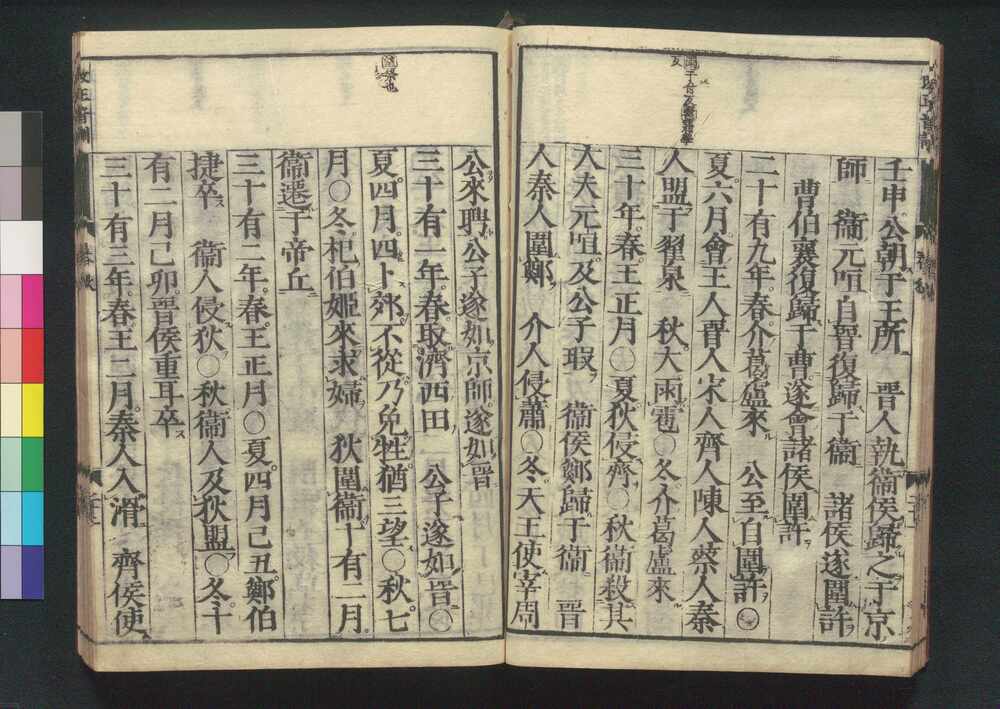 壬申公朝于王所　晋人執衞侯歸之于京
師　衞元咺自晉復歸于衞　諸侯遂圍許
曹伯襄復歸于曹遂會諸侯圍許
二十有九年春介葛盧來　公至自圍許〇
夏六月會王人晋人宋人齊人陳人蔡人秦
人盟于翟泉　秋大雨雹〇冬介葛盧來
三十年春王正月〇夏狄侵齊〇秋衞殺其
大夫元咺及公子瑕　衞侯鄭歸于衞　晋
人秦人圍鄭　介人侵蕭〇冬天王使宰周
公來聘公子遂如京師遂如晋
三十有一年春取濟西田　公子遂如晋〇
夏四月四卜郊不從乃免牲猶三望〇秋七
月〇冬杞伯姬來求婦　狄圍衞十有二月
衞遷于帝丘
三十有二年春王正月〇夏四月己丑鄭伯
捷卒　衞人侵狄〇秋衞人及狄盟〇冬十
有二月己卯晋侯重耳卒
三十有三年春王二月秦人入滑　齊侯使